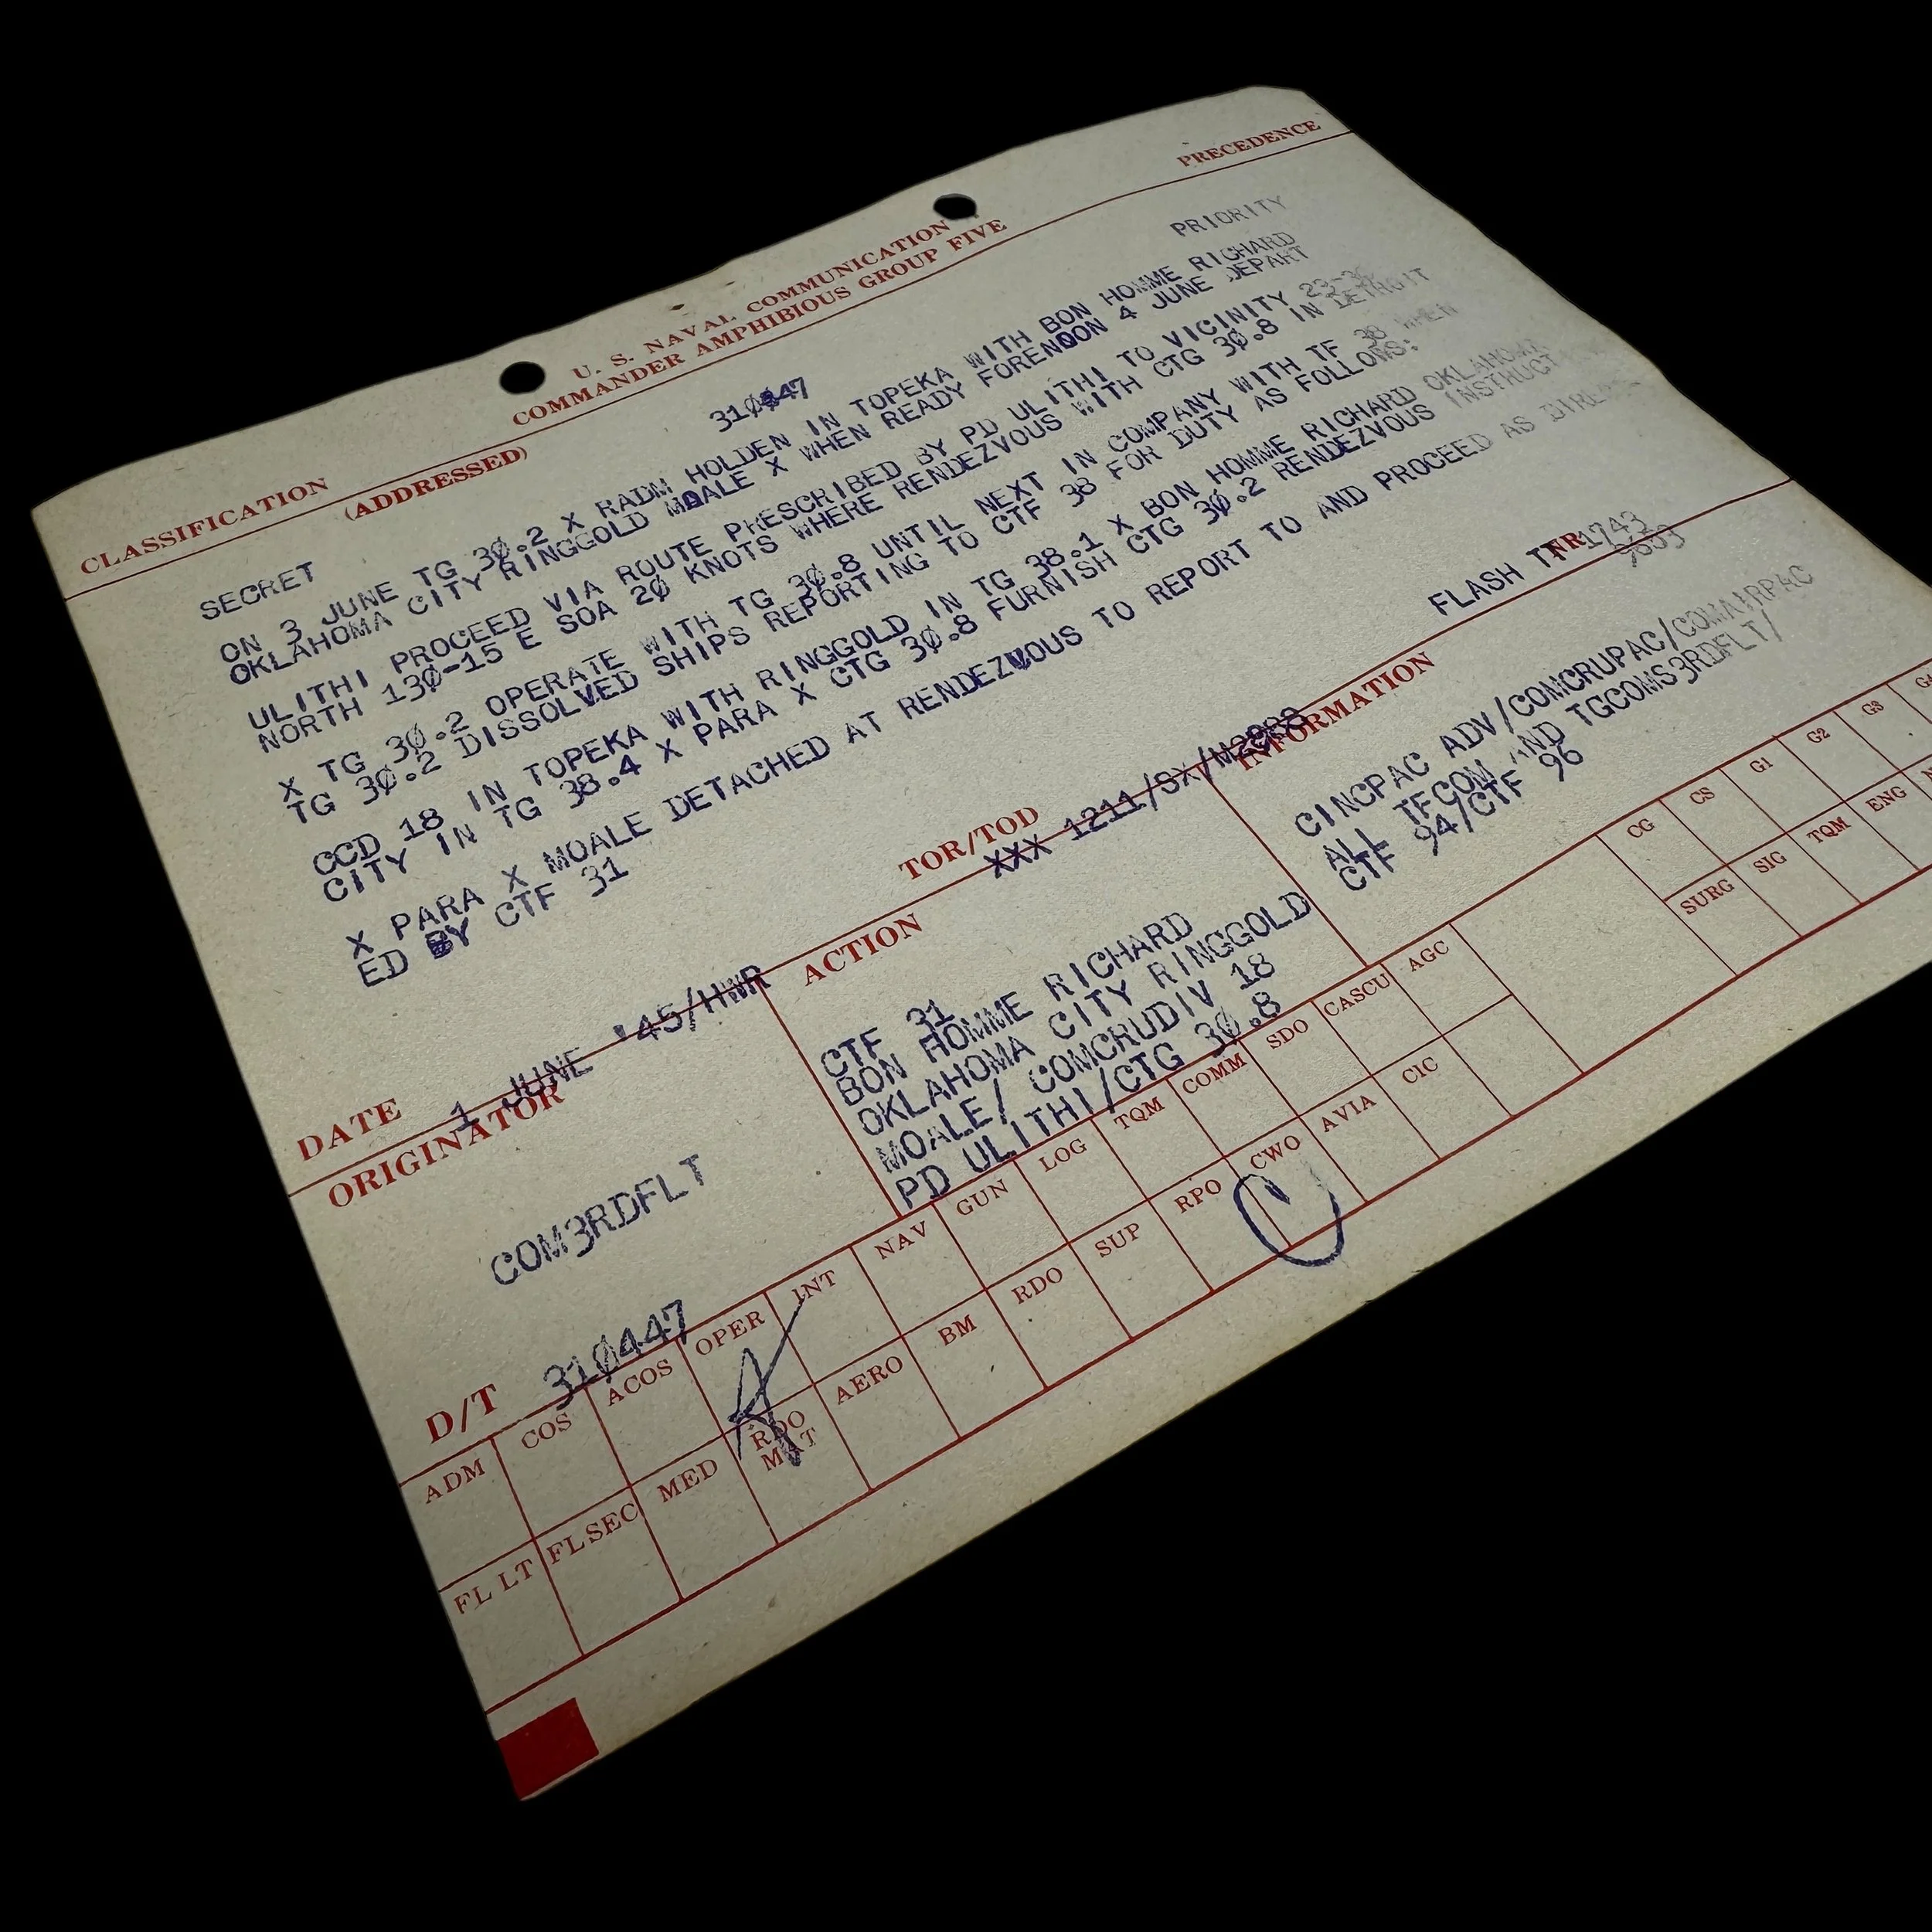 U. S. NAVAL COMMUNICATION
COMMANDER AMPHIBIOUS GROUP FIVE
CLASSIFICATION
(ADDRESSED)
PRECEDENCE
SECRET
PRIORITY
ON 3 JUNE TG 3Ø.2 X RADM HOLDEN IN TOPEKA WITH BON HOMME RICHARD
OKLAHOMA CITY RINGGOLD MOALE X WHEN READY FORENOON 4 JUNE DEPART
ULITHI PROCEED VIA ROUTE PRESCRIBED BY PD ULITHI TO VICINITY
NORTH 13Ø-15 E SOA 2Ø KNOTS WHERE RENDEZVOUS WITH CTG 3Ø.8 IN DETROIT
X TG 3Ø.2 OPERATE WITH TG 3Ø.8 UNTIL NEXT IN COMPANY WITH TF 38 WHEN
TG 3Ø.2 DISSOLVED SHIPS REPORTING TO CTF 38 FOR DUTY AS FOLLOWS:
CCD 18 IN TOPEKA WITH RINGGOLD IN TG 38.1 X BON HOMME RICHARD OKLAHOMA
CITY IN TG 38.4 X PARA X CTG 3Ø.8 FURNISH CTG 3Ø.2 RENDEZVOUS INSTRUCT
X PARA X MOALE DETACHED AT RENDEZVOUS TO REPORT TO AND PROCEED AS DIRECT
ED BY CTF 31
FLASH
NR 1243
DATE 1 JUNE '45/HWR
TOR/TOD XXX 1211/SX/
ORIGINATOR
ACTION
INFORMATION
COM3RDFLT
CTF 31
BON HOMME RICHARD
OKLAHOMA CITY RINGGOLD
MOALE/ COMCRUDIV 18
PD ULITHI/CTG 3Ø.8
CINCPAC ADV/COMCRUPAC/COMAIRPAC
ALL TFCOM AND TGCOMS3RDFLT/
CTF 94/CTF 96
D/T 31Ø447
ADM COS ACOS OPER INT NAV GUN LOG TQM COMM SDO CASCU AGC CG CS G1 G2 G3
FL LT FLSEC MED RDO MAT AERO BM RDO SUP RPO CWO AVIA CIC SURG SIG TQM ENG